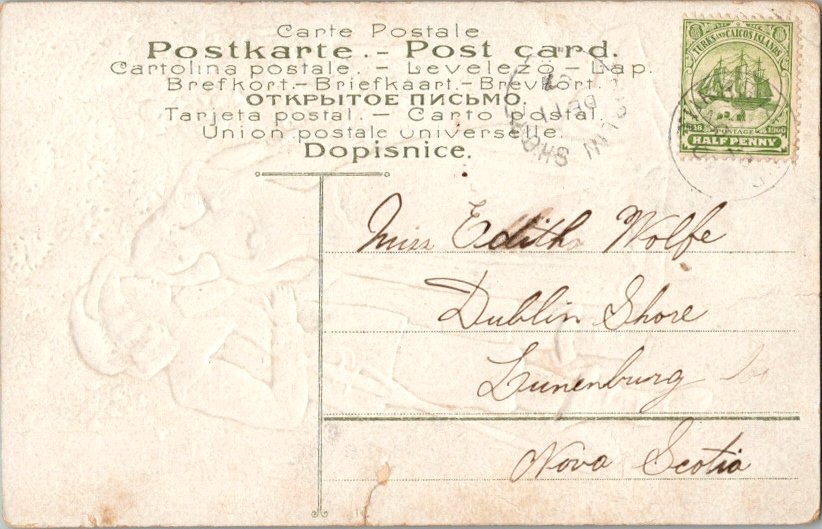 Carte Postale
Postkarte.- Post card.
Cartolina postale. - Levelező-Lap.
Brefkort.- Briefkaart.- Brevkort.
ОТКРЫТОЕ ПИСЬМО.
Tarjeta postal. - Carto postal.
Union postale universelle.
Dopisnice.
TURKS AND CAICOS ISLANDS
POSTAGE
HALF PENNY
Miss Edith Wolfe
Dublin Shore
Lunenburg
Nova Scotia